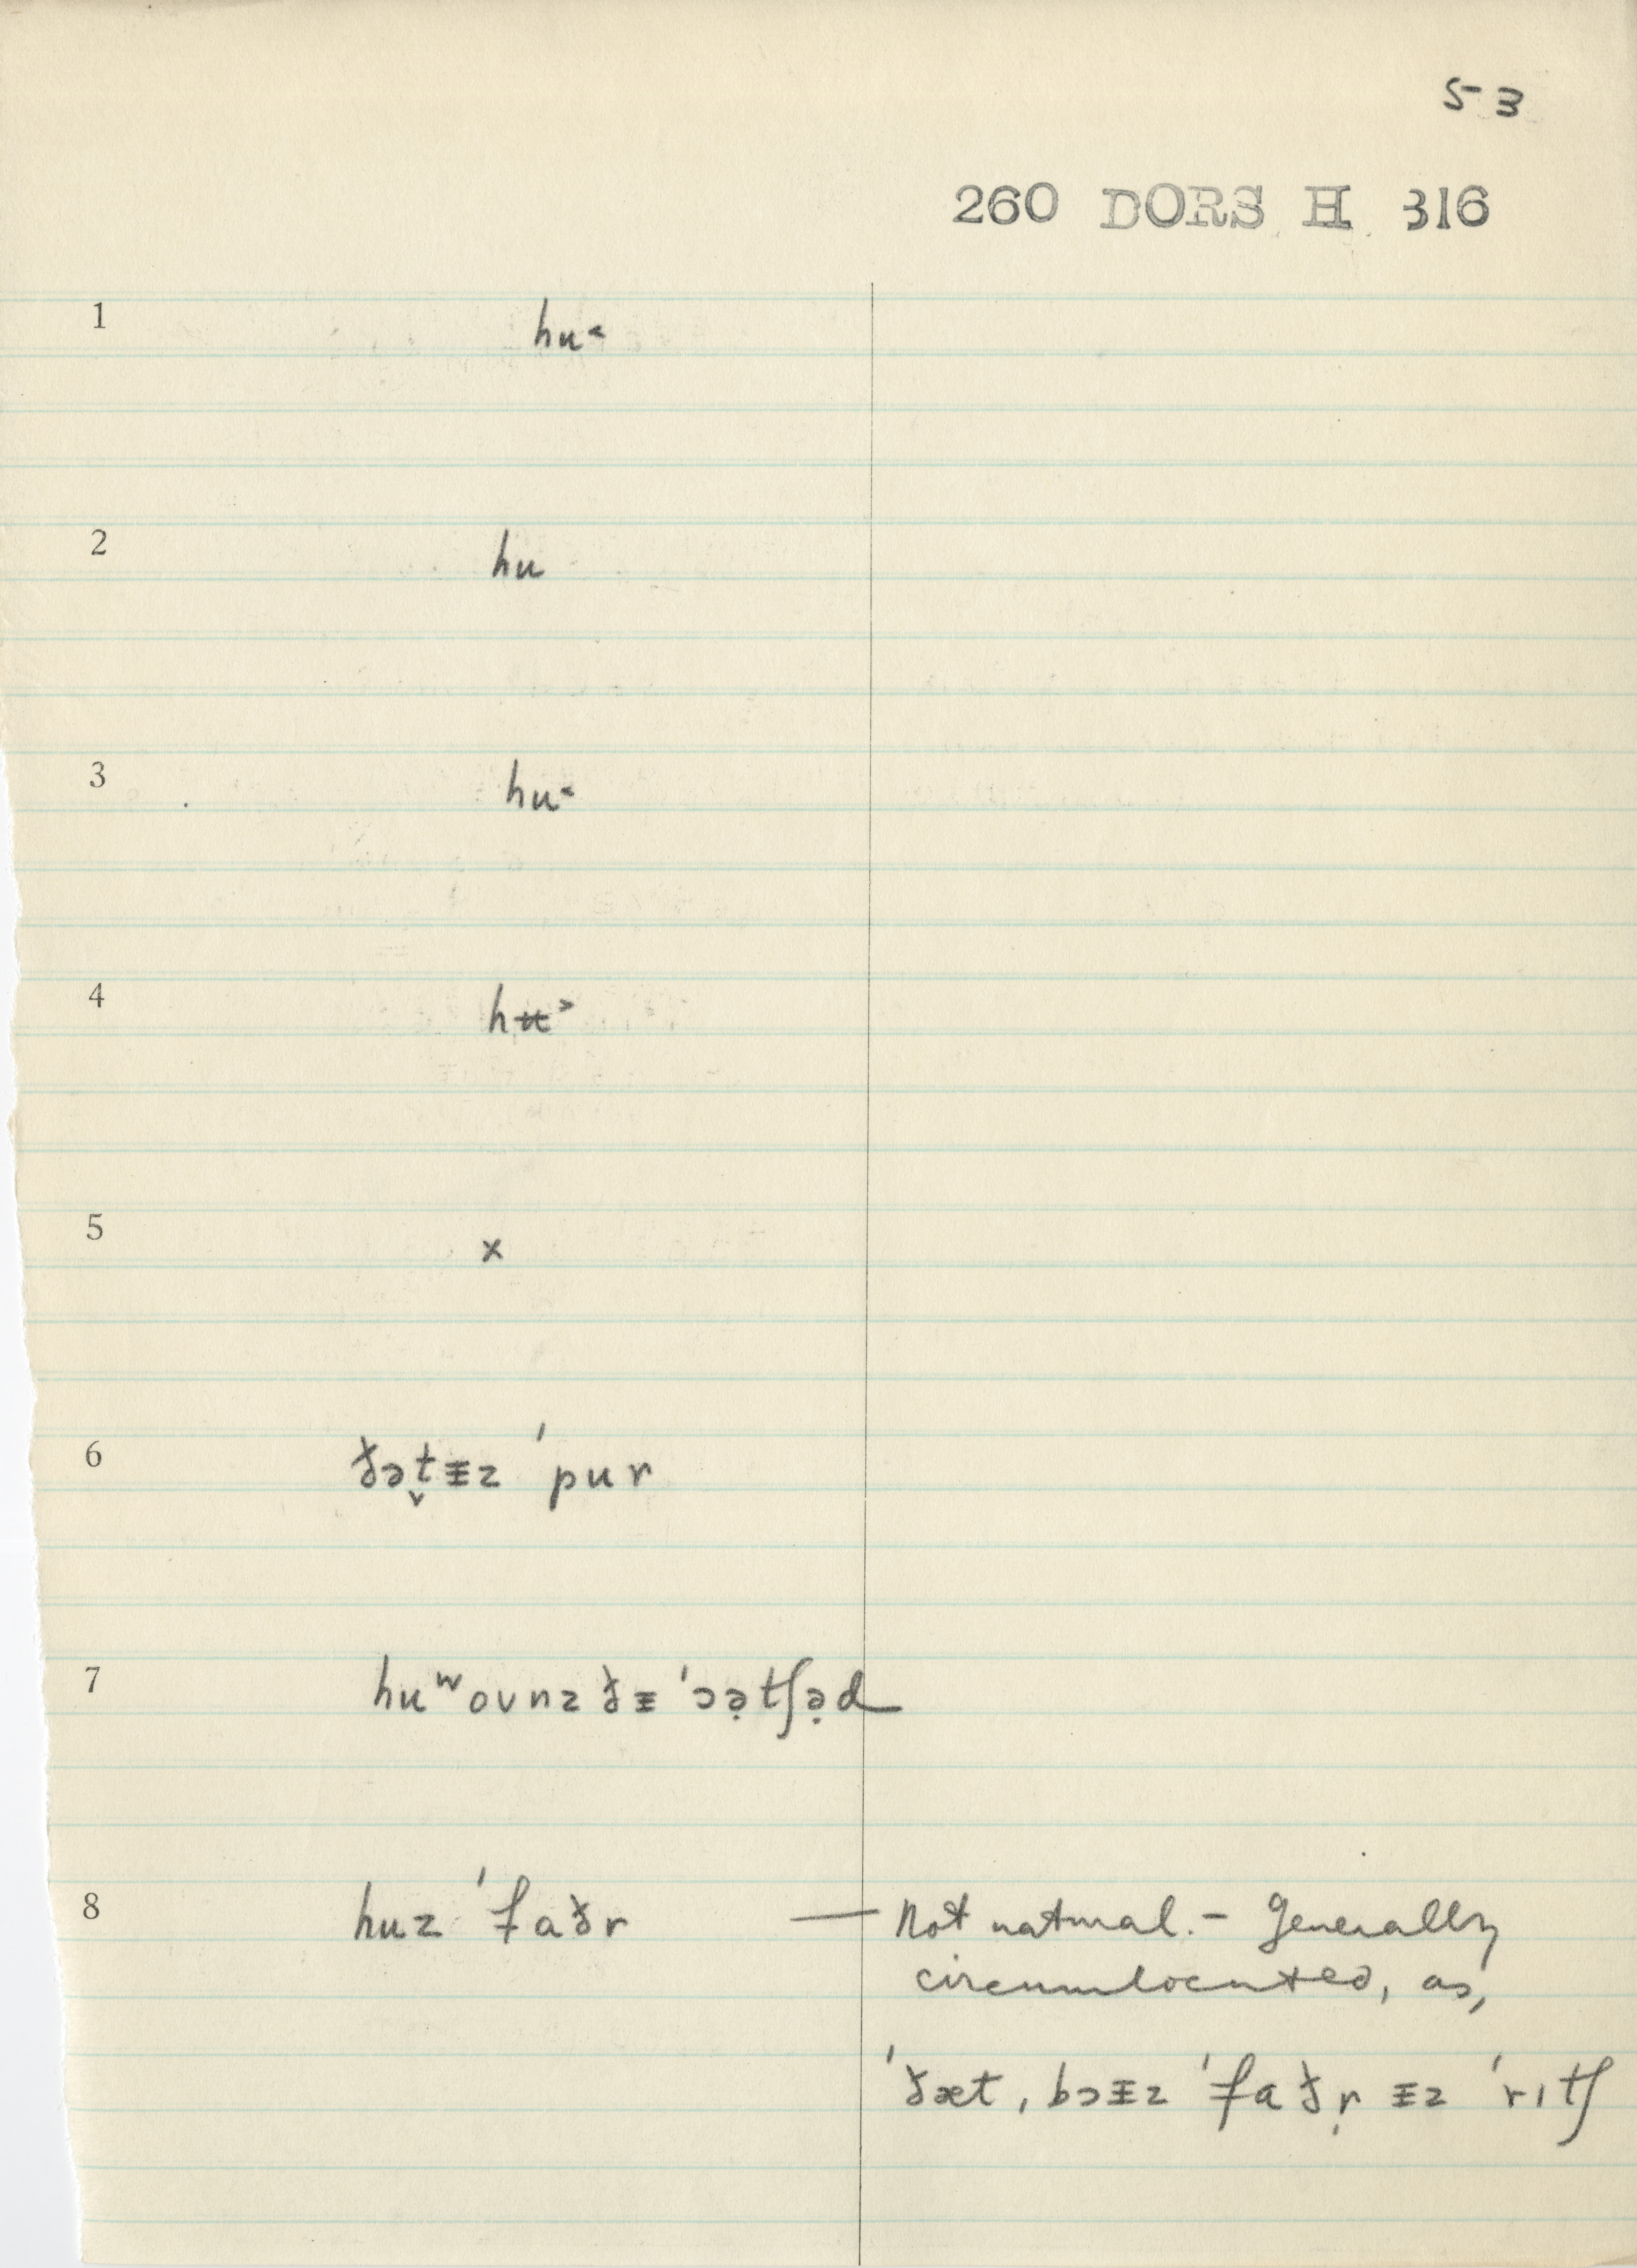 53
260 DORS H 316
1 hu˂
2 hu
3 hu˂
4 hʉ˃
5 x
6 ðət̬ᵻz ˈpur
7 huʷoʊnz ðᵻ ˈɔə̣tʃə̣d
8 huz ˈfaðr — Not natural. – Generally
circumlocuted, as,
ˈðæt, bɔᵻz ˈfaðṛ ᵻz ˈrɪtʃ